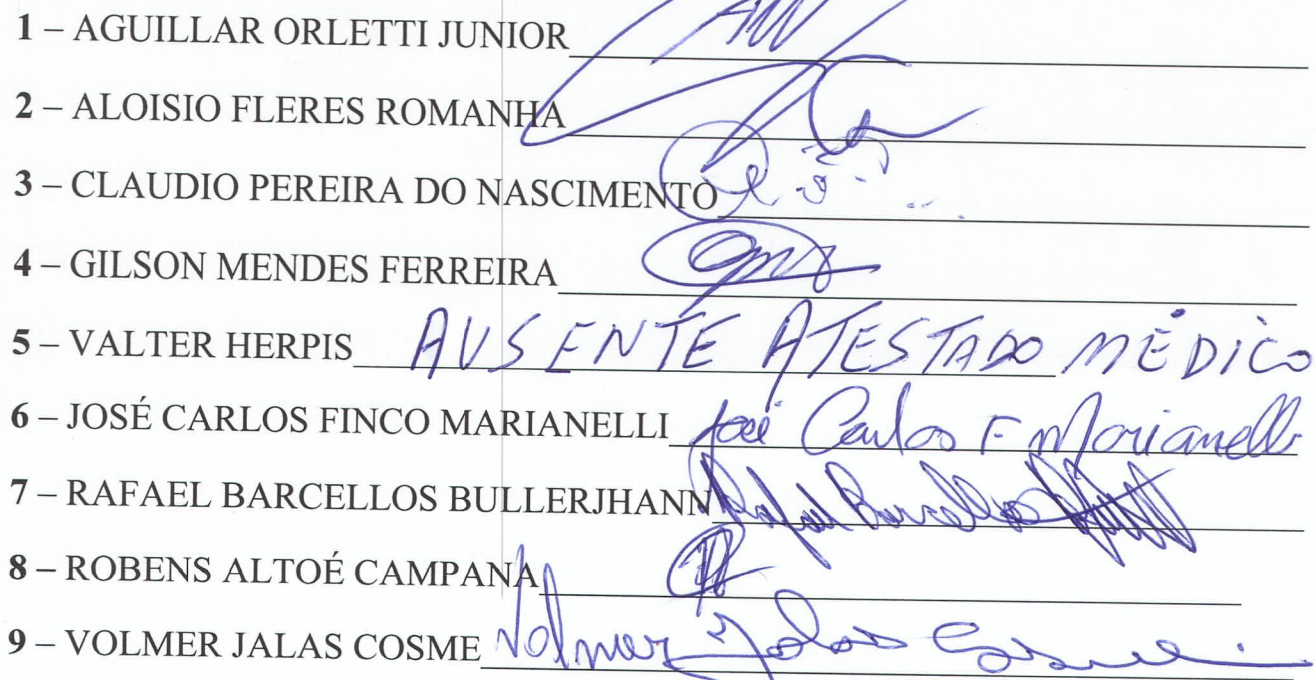 1 – AGUILLAR ORLETTI JUNIOR
2 – ALOISIO FLERES ROMANHA
3 – CLAUDIO PEREIRA DO NASCIMENTO
4 – GILSON MENDES FERREIRA
5 – VALTER HERPIS AUSENTE ATESTADO MÉDICO
6 – JOSÉ CARLOS FINCO MARIANELLI José Carlos F Marianelli
7 – RAFAEL BARCELLOS BULLERJHANN Rafael Barcellos
8 – ROBENS ALTOÉ CAMPANA
9 – VOLMER JALAS COSME Volmer Jalas Cosme